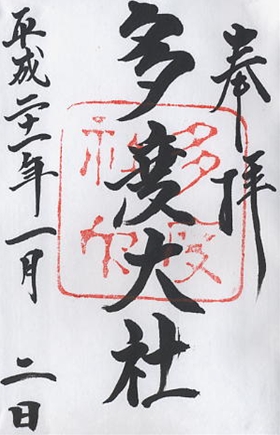 奉拝
多度大社
平成二十一年一月二日